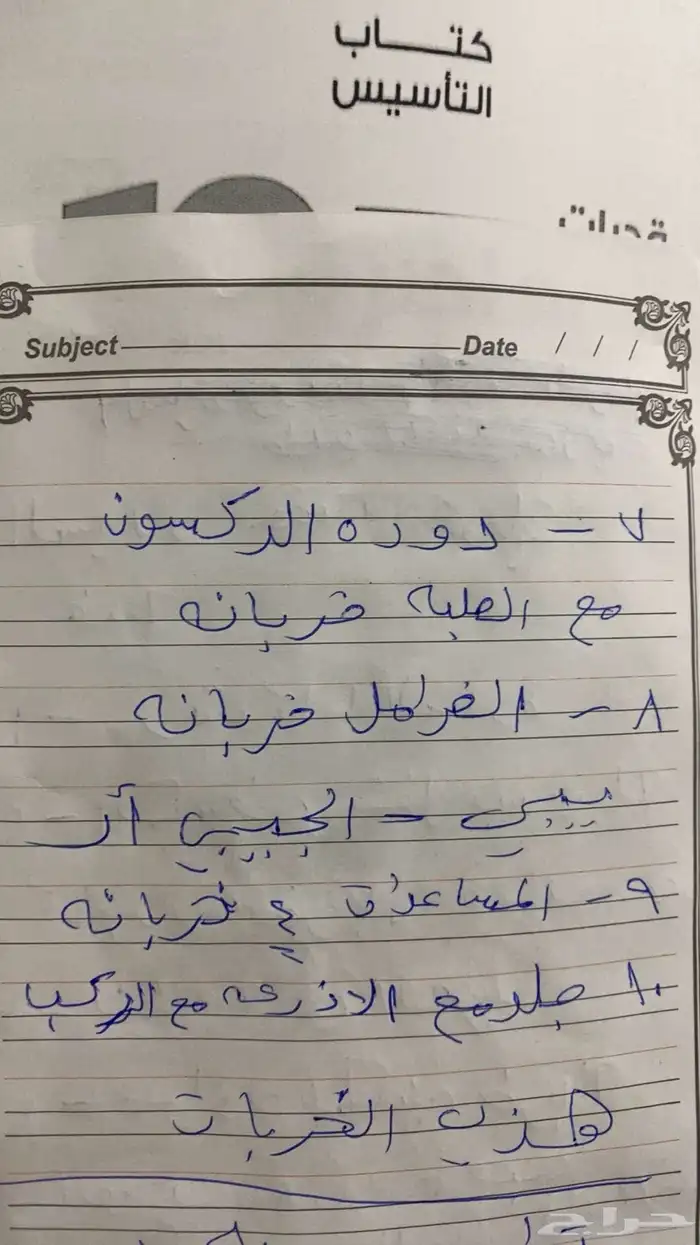 كتاب
التأسيس
قدرات
Subject Date / / /
٧ - دوره الدركسون
مع العلبه خربانه
٨ - الفرامل خربانه
سببي - الجيبي أر
٩ - المساعدات ٤ خربانه
١٠ جلد مع الاذرعه مع الركب
هذي الخربات
حراج